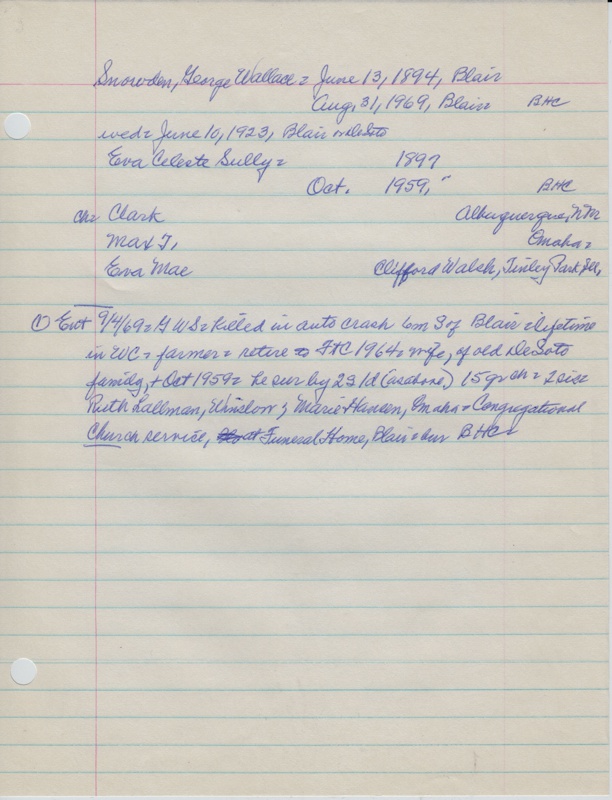 Snowden, George Wallace = June 13, 1894, Blair
Aug, 31, 1969, Blair BHC
wed = June 10, 1923, Blair or DeSoto
Eva Celeste Sully = 1897
Oct. 1959, " BHC
ch = Clark Albuquerque, NM
Max J, Omaha =
Eva Mae Clifford Walsh, Tinley Park, Ill,
① Ent 9/4/69 = GWS = killed in auto crash 6m S of Blair = lifetime
in WC = farmer = retire to FtC 1964 = wife, of old DeSoto
family, + Oct 1959 = he sur by 2s 1d (as above) 15 gr ch = 2 sis =
Ruth Lallman, Winslow & Marie Hansen, Omaha = Congregational
Church service, Funeral Home, Blair = bur BHC =